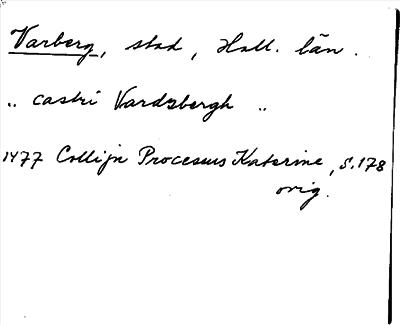 Varberg, stad, Hall. län.
.. castri Vardzbergh ..
1477 Collijn Procesus Katerine, S. 178
orig.